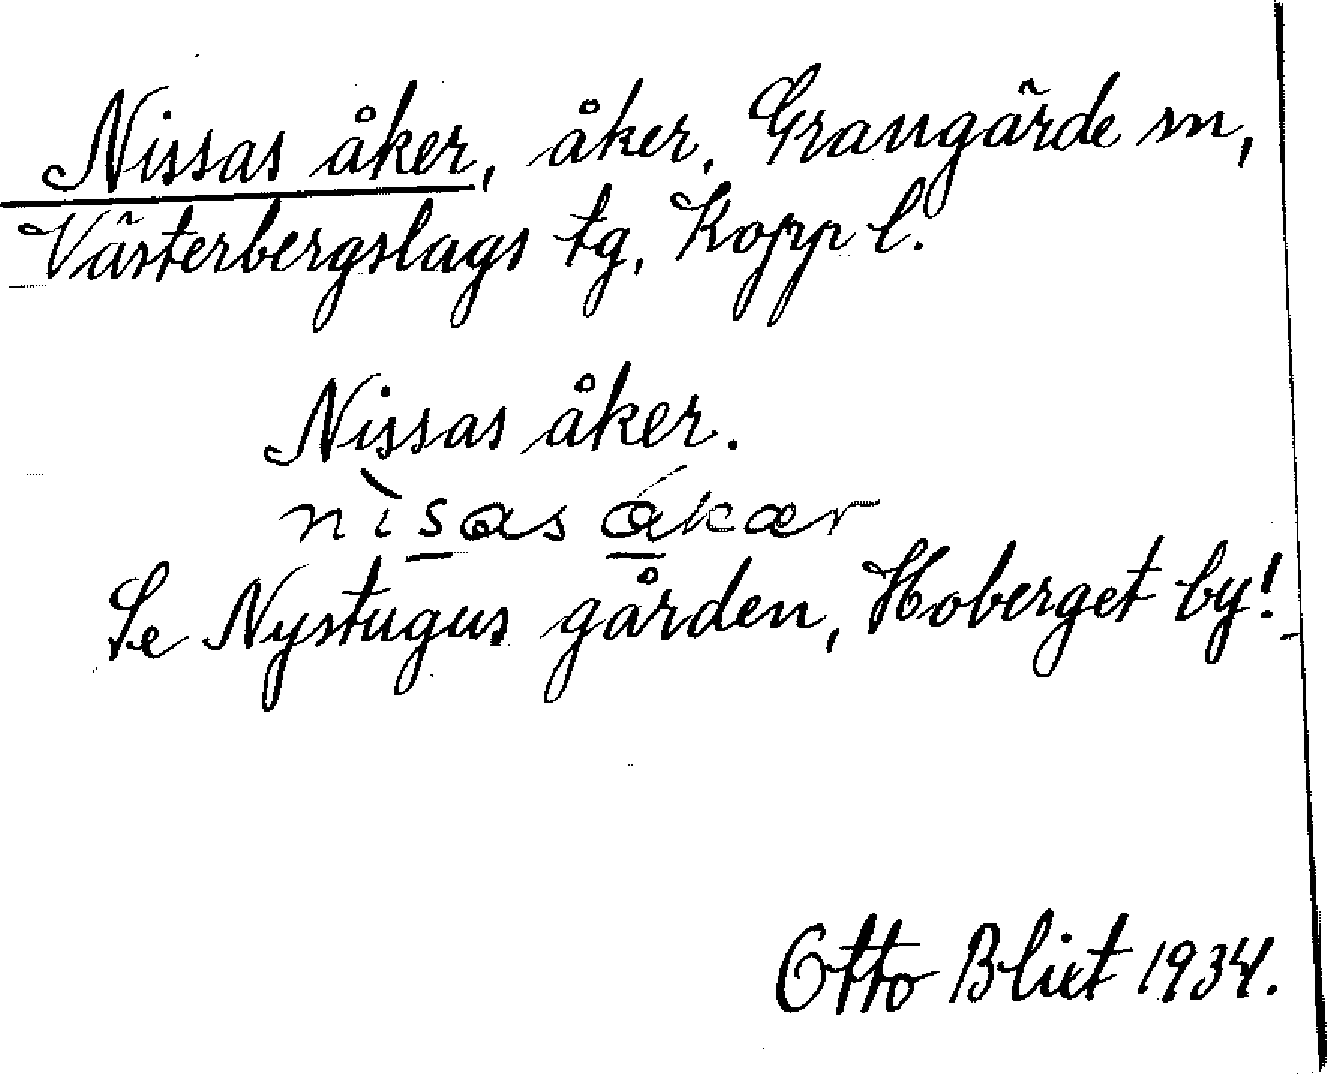 Nissas åker, åker, Grangärde sn,
Västerbergslags tg, Kopp l.
Nissas åker.
nìsas ákær
Se Nystugus gården, Hoberget by!
Otto Blixt 1934.